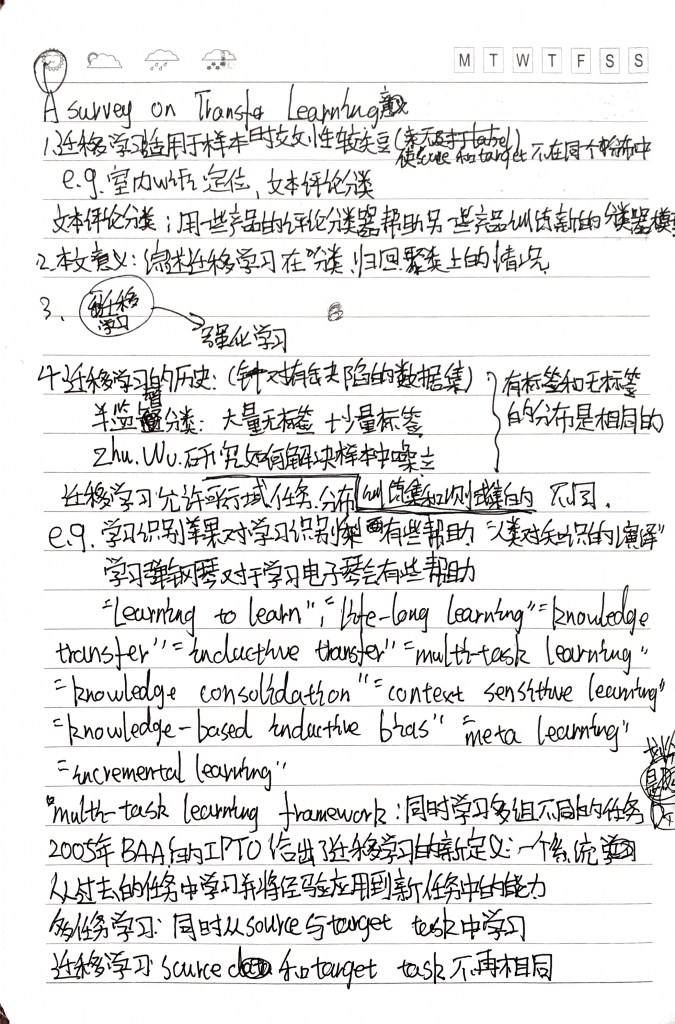 M T W T F S S
A survey on Transfer Learning
1.迁移学习适用于样本时效性较关 (来不及打label)
使source和target不在同个分布中
e.g. 室内wifi定位,文本评论分类
文本评论分类:用一些产品的评论分类器帮助另一些产品训练新的分类器模型
2.本文意义:综述迁移学习在分类.归回.聚类上的情况
3. 迁移学习
强化学习
4.迁移学习的历史:(针对有缺陷的数据集)
有标签和无标签的分布是相同的
半监督分类: 大量无标签+少量标签
Zhu.Wu.研究如何解决样本中噪立
迁移学习允许 域.任务.分布 训练集和测试集的 不同.
e.g. 学习识别苹果对学习识别梨 有些帮助. "人类对知识的演译"
学习弹钢琴对于学习电子琴会有些帮助
"Learning to learn", "life-long learning" "knowledge
transfer" "inductive transfer" "multi-task learning"
"knowledge consolidation" "context sensitive learning"
"knowledge-based inductive bias" "meta learning"
"incremental learning"
"multi-task learning framework:同时学习多组不同的任务
2005年BAA的IPTO给出了迁移学习的新定义:一个系统
从过去的任务中学习并将经验应用到新任务中的能力
多任务学习: 同时从source与target task中学习
迁移学习 source 和 target task 不再相同